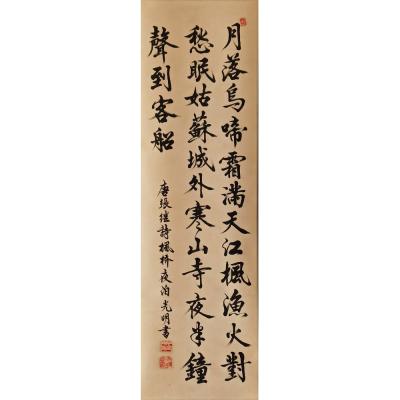 月落烏啼霜滿天江楓漁火對
愁眠姑蘇城外寒山寺夜半鐘
聲到客船
唐張继詩楓橋夜泊光明書